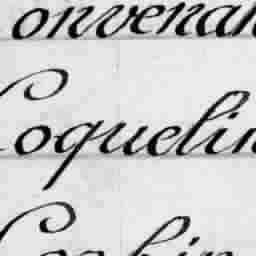 onvenan
Coquelin